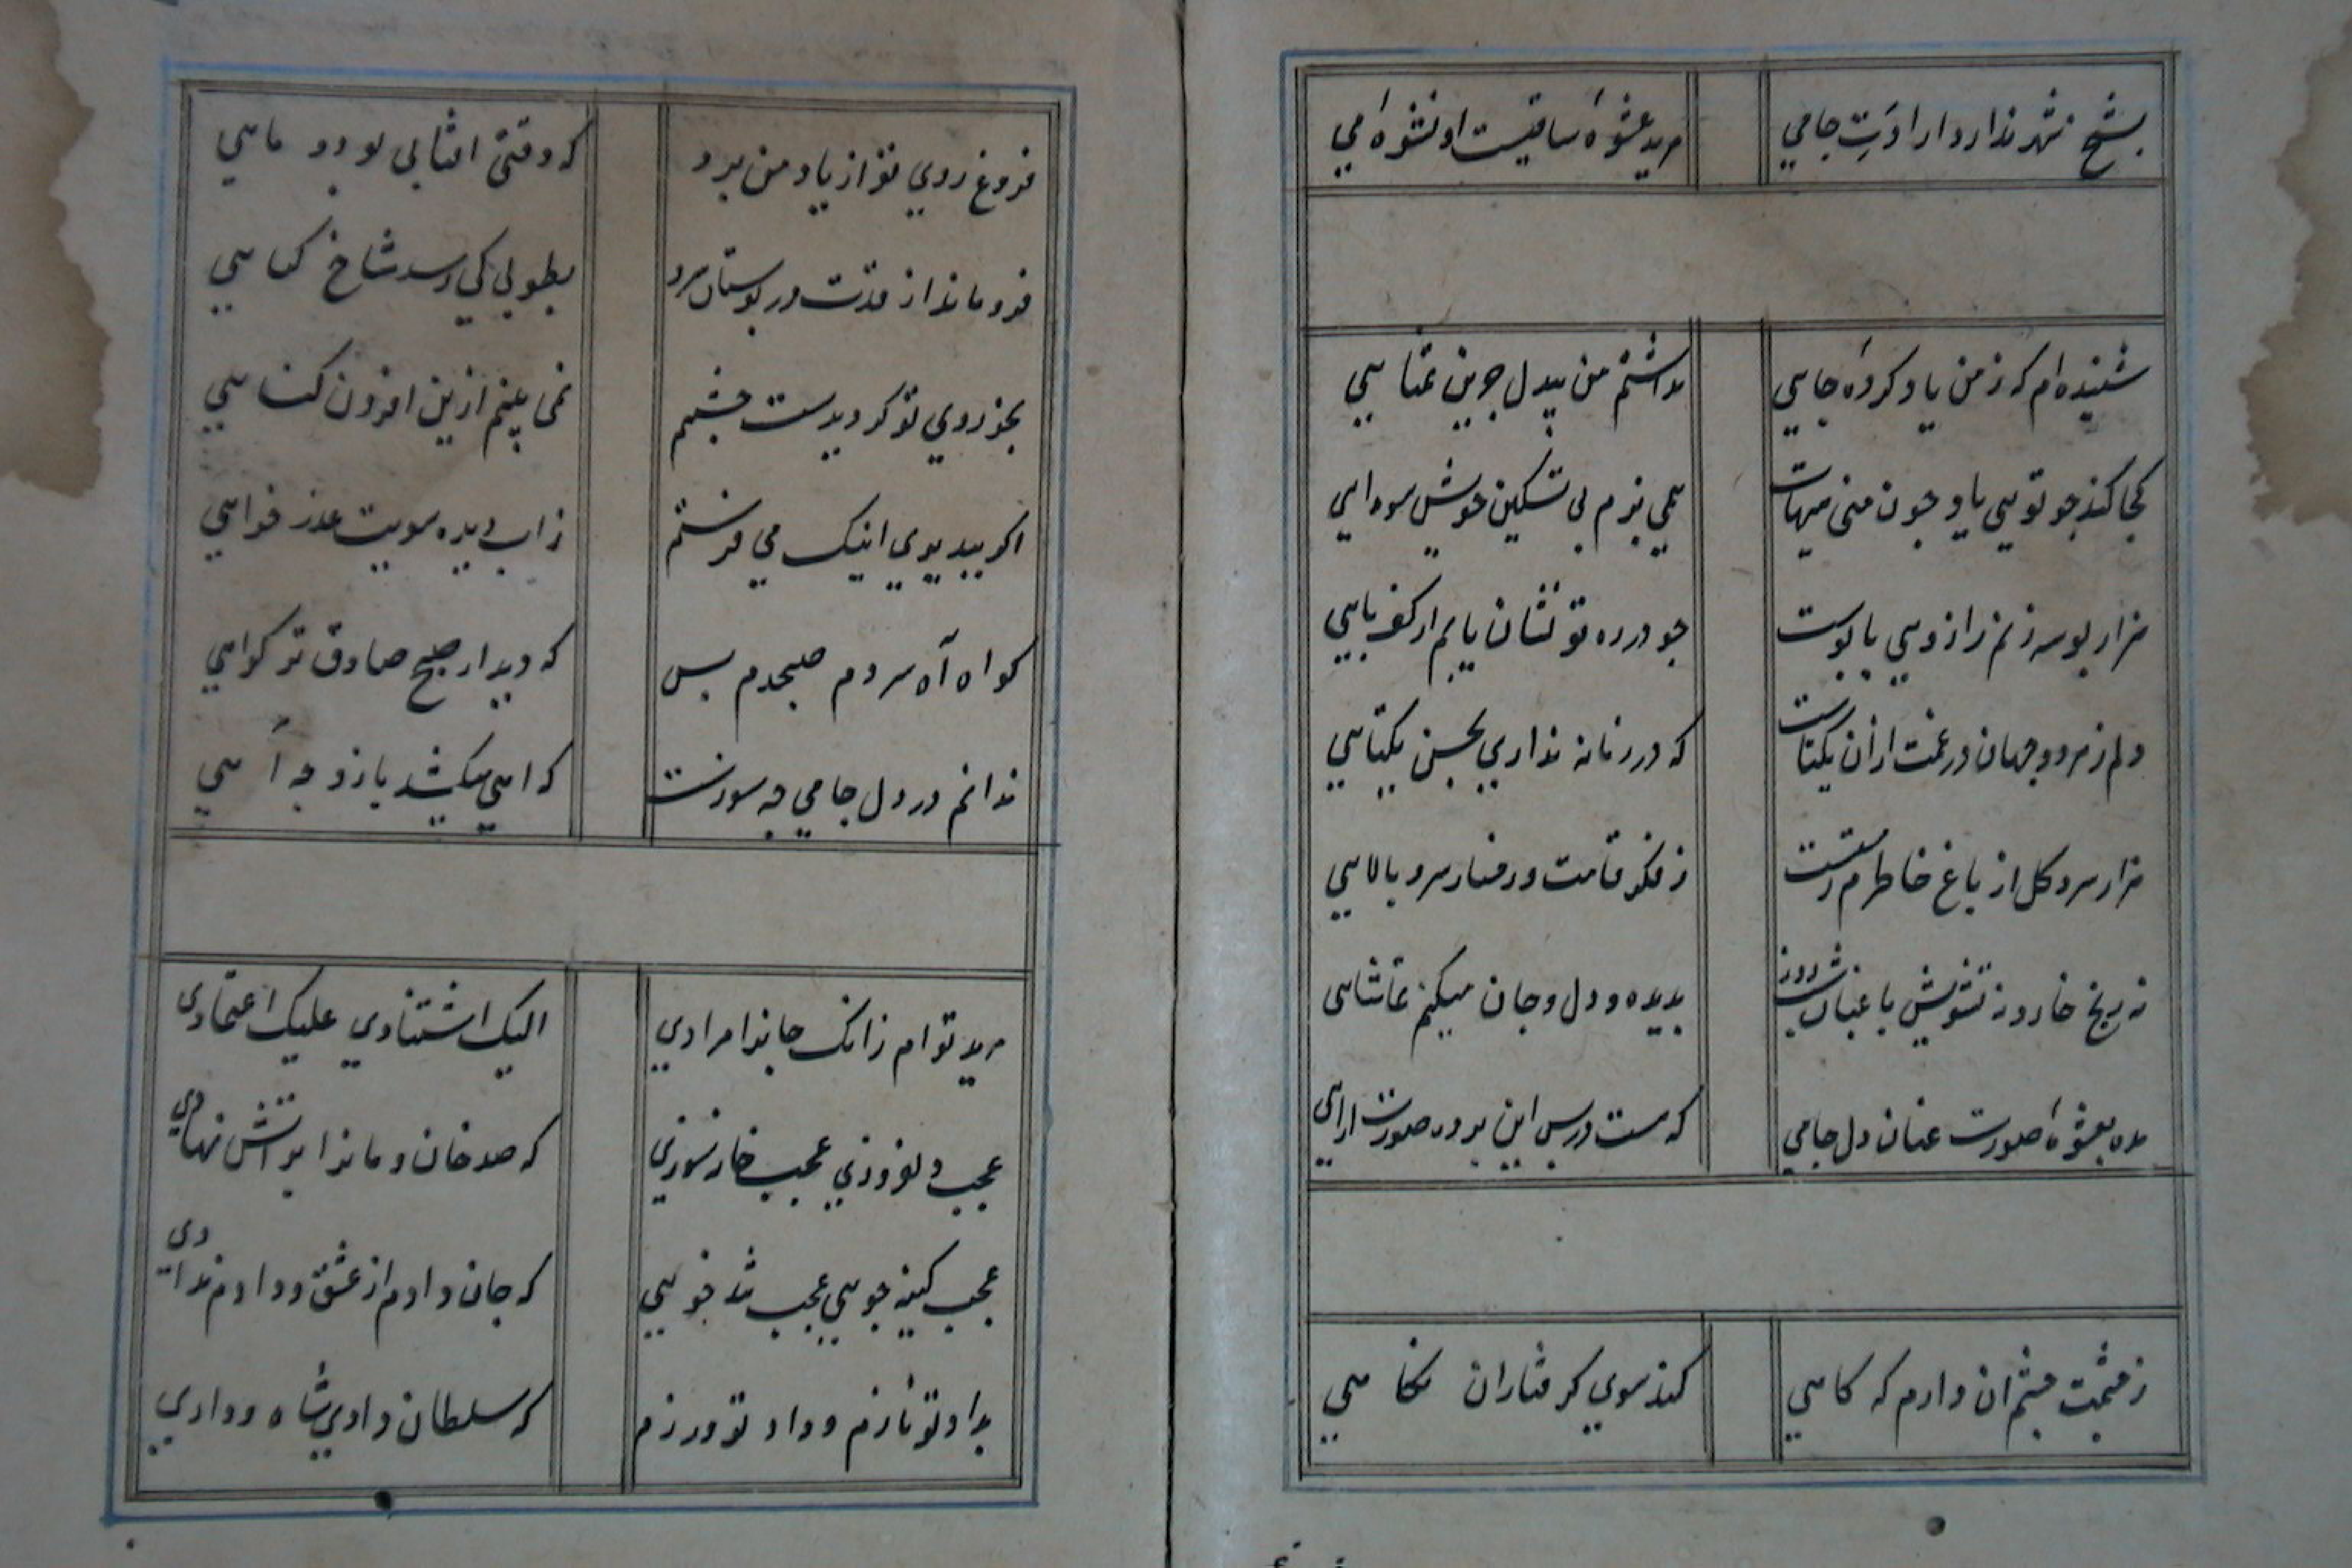 بشیخ شهر ندارد ارادت جامی
مرید عشوهٔ ساقیست او نشوهٔ می
شنیده‌ام که ز من یاد کردهٔ جایی
نداشتم من بیدل جزین تمنایی
کجا کند چو تویی یاد چون منی هیهات
همی پزم بی تسکین خویش سودایی
هزار بوسه زنم راز دهی پابوست
چو در ره تو نشان یابم از کف پایی
دلم ز هر دو جهان در غمت ازان یکتاست
که در زمانه نداری بحسن یکتایی
هزار سرو و گل از باغ خاطرم رستست
ز فکر قامت و رفتار سرو بالایی
نه رنج خار و نه تشویش باغبان شب و روز
بدیده و دل و جان میکنم تماشایی
مده بعشوهٔ صورت عنان دل جامی
که هست در پس این پرده صورت ارایی
ز چشمت چشم ان دارم که گاهی
کند سوی گرفتاران نگاهی
فروغ روی تو از یاد من برد
که وقتی افتابی بود و ماهی
فرو ماند از قدت در بوستان سرو
بطوبی کی رسد شاخ گیاهی
بجز روی تو گر دیدست چشمم
نمی بینم ازین افزون گناهی
اگر بیند بوی اینک می فرستم
ز اب دیده سویت عذر خواهی
گواه آه سردم صبحدم بس
که دیدار صبح صادق تر گواهی
ندانم در دل جامی چه سوزست
که اهی میکشد باز و چه آهی
مرید توام زانک جانرا مرادی
الیک اشتنادی علیک اعتمادی
عجب دلفروزی عجب خانه سوزی
که صد خان و مانرا بر اتش نهادی
عجب کینه جویی عجب تند خویی
که جان دادم از عشق و دادم ندادی
بداد تو نازم و داد تو ورزم
که سلطان دادی شاه ودادی